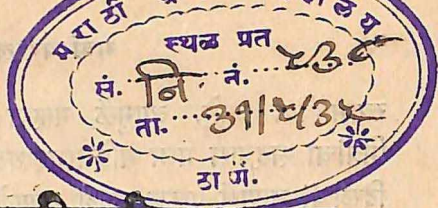 मराठी
लय
स्थळ प्रत
सं. नि. नं. ४३८
ता. ३१/४/३५
ठाणें.